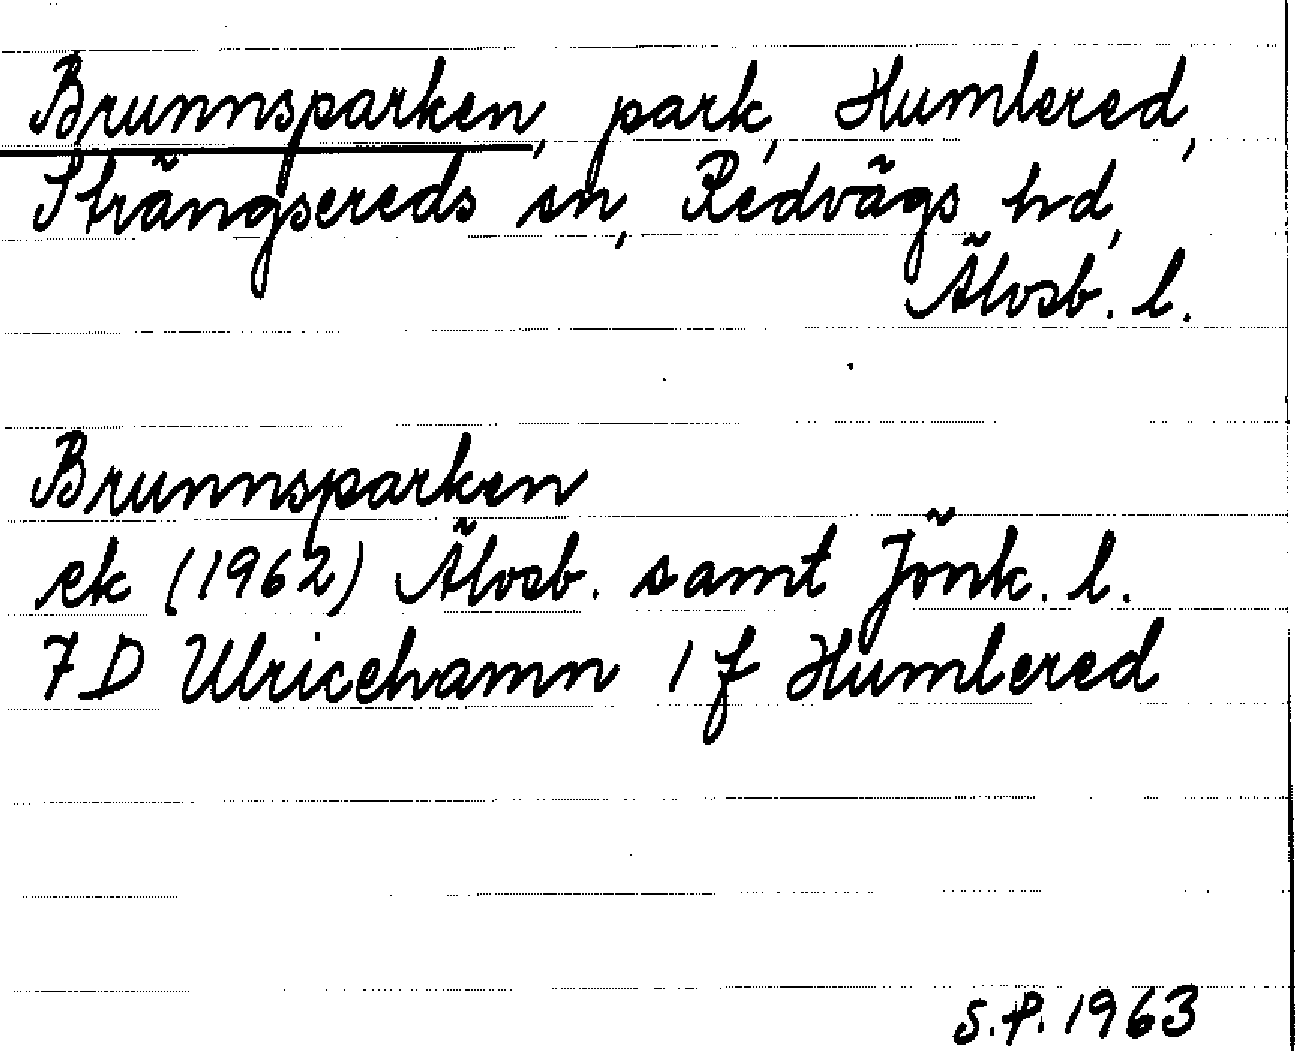 Brunnsparken, park, Humlered,
Strängsereds sn, Redvägs hd,
Älvsb. l.
Brunnsparken
ek (1962) Älvsb. samt Jönk. l.
7D Ulricehamn 1 f Humlered
S.P. 1963